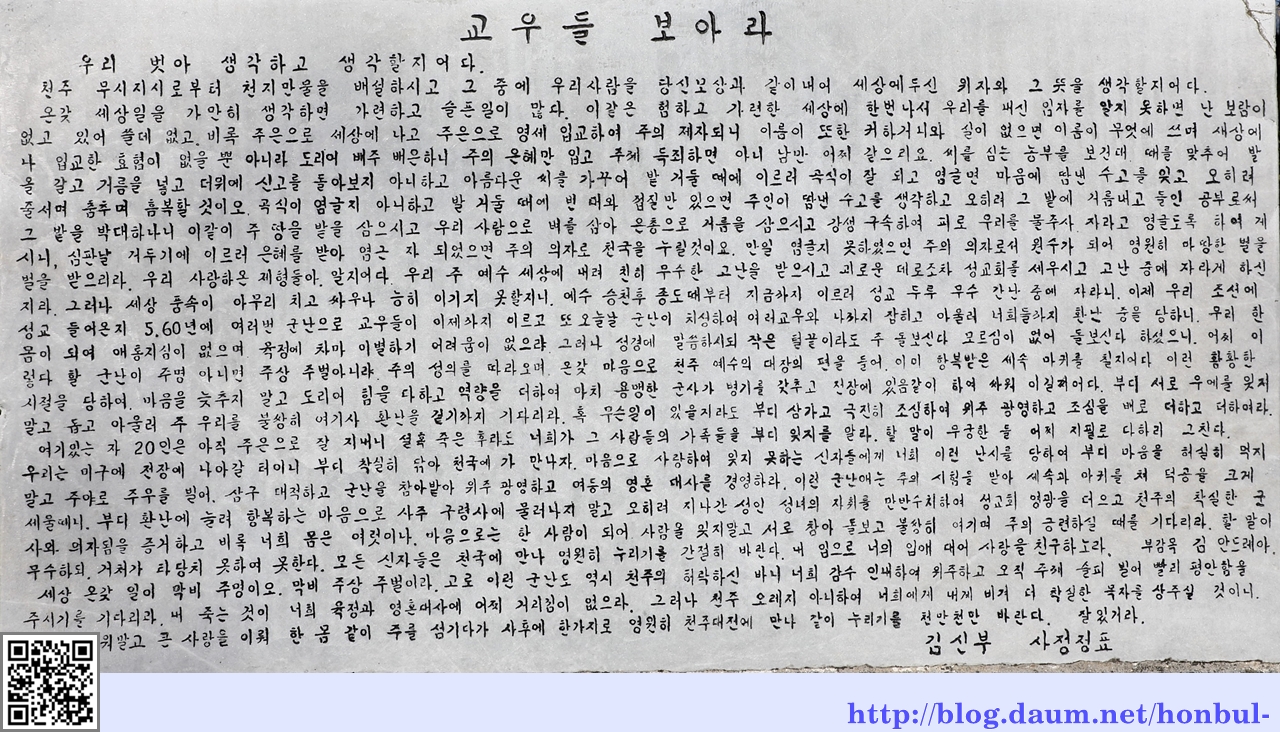 교우들 보아라
우리 벗아 생각하고 생각할지어다.
천주 무시지시로부터 천지만물을 배설하시고 그 중에 우리사람을 당신모상과 같이내어 세상에두신 위자와 그 뜻을 생각할지어다.
온갖 세상일을 가만히 생각하면 가련하고 슬픈일이 많다. 이같은 험하고 가련한 세상에 한번나서 우리를 내신 임자를 알지 못하면 난 보람이
없고 있어 쓸데 없고. 비록 주은으로 세상에 나고 주은으로 영세 입교하여 주의 제자되니 이름이 또한 커하거니와 실이 없으면 이름이 무엇에 쓰며 세상에
나 입교한 효험이 없을 뿐 아니라 도리어 배주 배은하니 주의 은혜만 입고 주께 득죄하면 아니 남만 어찌 같으리요. 씨를 심는 농부를 보건대 때를 맞추어 밭
을 갈고 거름을 넣고 더위에 신고를 돌아보지 아니하고 아름다운 씨를 가꾸어 밭 거둘 때에 이르러 곡식이 잘 되고 염글면 마음에 땀낸 수고를 잊고 오히려
즐서며 춤추며 흠복할 것이오. 곡식이 염글지 아니하고 밭 거둘 때에 빈 대와 껍질만 있으면 주인이 땀낸 수고를 생각하고 오히려 그 밭에 거름내고 들인 공부로써
그 밭을 박대하나니 이같이 주 땅을 밭을 삼으시고 우리 사람으로 벼를 삼아 은총으로 거름을 삼으시고 강생 구속하여 피로 우리를 물주사 자라고 염글도록 하여 계
시니, 심판날 거두기에 이르러 은혜를 받아 염근 자 되었으면 주의 의자로 천국을 누릴것이요. 만일 염글지 못하였으면 주의 의자로서 원수가 되어 영원히 마땅한 벌을
벌을 받으리라. 우리 사랑하온 제형들아. 알지어다. 우리 주 예수 세상에 내려 친히 무수한 고난을 받으시고 괴로운 데로조차 성교회를 세우시고 고난 중에 자라게 하신
지라. 그러나 세상 풍속이 아무리 치고 싸우나 능히 이기지 못할지니. 예수 승천후 종도때부터 지금까지 이르러 성교 두루 무수 간난 중에 자라니. 이제 우리 조선에
성교 들어온지 5,60년에 여러번 군난으로 교우들이 이제까지 이르고 또 오늘날 군난이 치성하여 여러교우와 나까지 잡히고 아울러 너희들까지 환난 중을 당하니. 우리 한
몸이 되여 애통지심이 없으며. 육정에 차마 이별하기 어려움이 없으랴. 그러나 성경에 말씀하시되 작은 털끝이라도 주 돌보신다 모르심이 없어 돌보신다 하셨으니. 어찌 이
렇다 할 군난이 주명 아니면 주상 주벌아니랴. 주의 성의를 따라오며. 온갖 마음으로 천주 예수의 대장의 편을 들어. 이미 항복받은 세속 마귀를 칠지어다 이런 황황한
시절을 당하여. 마음을 늦추지 말고 도리어 힘을 다하고 역량을 더하여 마치 용맹한 군사가 병기를 갖추고 전장에 있음같이 하여 싸워 이길찌어다. 부디 서로 우애를 잊지
말고 돕고 아울러 주 우리를 불쌍히 여기사 환난을 걷기까지 기다리라. 혹 무슨일이 있을지라도 부디 삼가고 극진히 조심하여 위주 광영하고 조심을 배로 더하고 더하여라.
여기있는 자 20인은 아직 주은으로 잘 지내니 설혹 죽은 후라도 너희가 그 사람들의 가족들을 부디 잊지를 말라. 할 말이 무궁한 들 어찌 지필로 다하리 그친다.
우리는 미구에 전장에 나아갈 터이니 부디 착실히 닦아 천국에 가 만나자. 마음으로 사랑하여 잊지 못하는 신자들에게 너희 이런 난시를 당하여 부디 마음을 허실히 먹지
말고 주야로 주우를 빌어. 삼구 대적하고 군난을 참아받아 위주 광영하고 여등의 영혼 대사를 경영하라. 이런 군난때는 주의 시험을 받아 세속과 마귀를 쳐 덕공을 크게
세울때니. 부디 환난에 눌려 항복하는 마음으로 사주 구령사에 물러나지 말고 오히려 지나간 성인 성녀의 자취를 만반수치하여 성교회 영광을 더으고 천주의 착실한 군
사와 의자됨을 증거하고 비록 너희 몸은 여럿이나. 마음으로는 한 사람이 되어 사람을 잊지말고 서로 참아 돌보고 불쌍히 여기며 주의 긍련하실 때를 기다리라. 할 말이
무수하되. 거처가 타당치 못하여 못한다. 모든 신자들은 천국에 만나 영원히 누리기를 간절히 바란다. 내 입으로 너의 입에 대어 사랑을 친구하노라. 부감목 김 안드레아.
세상 온갖 일이 막비 주명이오. 막비 주상 주벌이라. 고로 이런 군난도 역시 천주의 허락하신 바니 너희 감수 인내하여 위주하고 오직 주께 슬피 빌어 빨리 평안함을
주시기를 기다리라. 내 죽는 것이 너희 육정과 영혼대사에 어찌 거리낌이 없으랴. 그러나 천주 오래지 아니하여 너희에게 내게 비겨 더 착실한 목자를 상주실 것이니.
워말고 큰 사랑을 이뤄 한 몸 같이 주를 섬기다가 사후에 한가지로 영원히 천주대전에 만나 같이 누리기를 천만천만 바란다. 잘있거라.
김신부 사정정표
http://blog.daum.net/honbul-